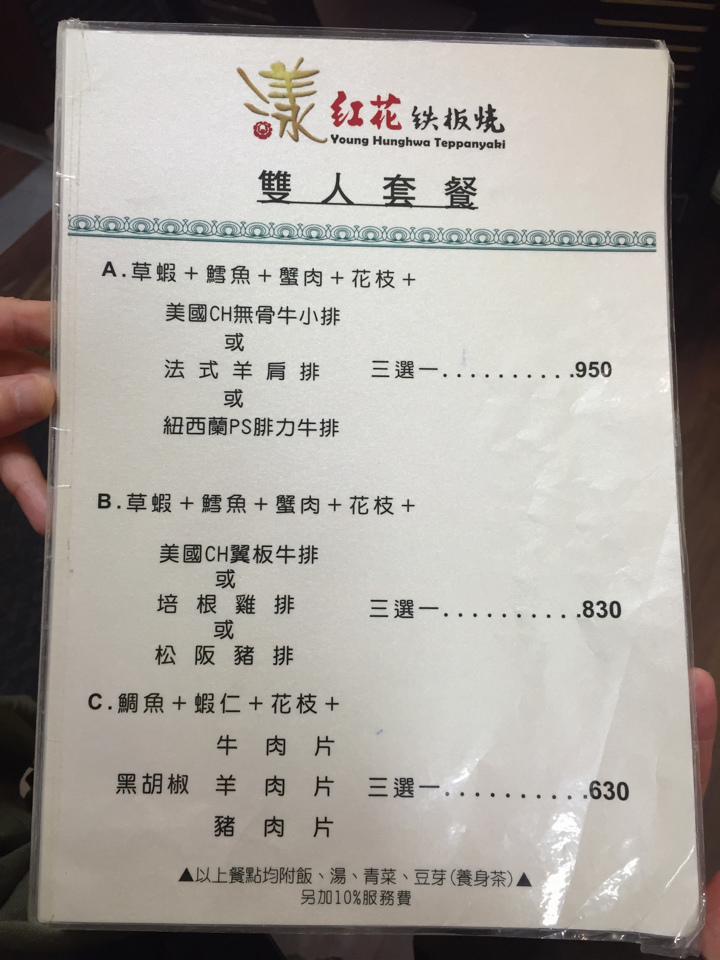 漾 红花 铁板烧
Young Hunghwa Teppanyaki
雙人套餐
A.草蝦＋鱈魚＋蟹肉＋花枝＋
美國CH無骨牛小排
或
法式羊肩排 三選一..........950
或
紐西蘭PS腓力牛排
B.草蝦＋鱈魚＋蟹肉＋花枝＋
美國CH翼板牛排
或
培根雞排 三選一..........830
或
松阪豬排
C.鯛魚＋蝦仁＋花枝＋
牛肉片
黑胡椒 羊肉片 三選一..........630
豬肉片
▲以上餐點均附飯、湯、青菜、豆芽(養身茶)▲
另加10%服務費